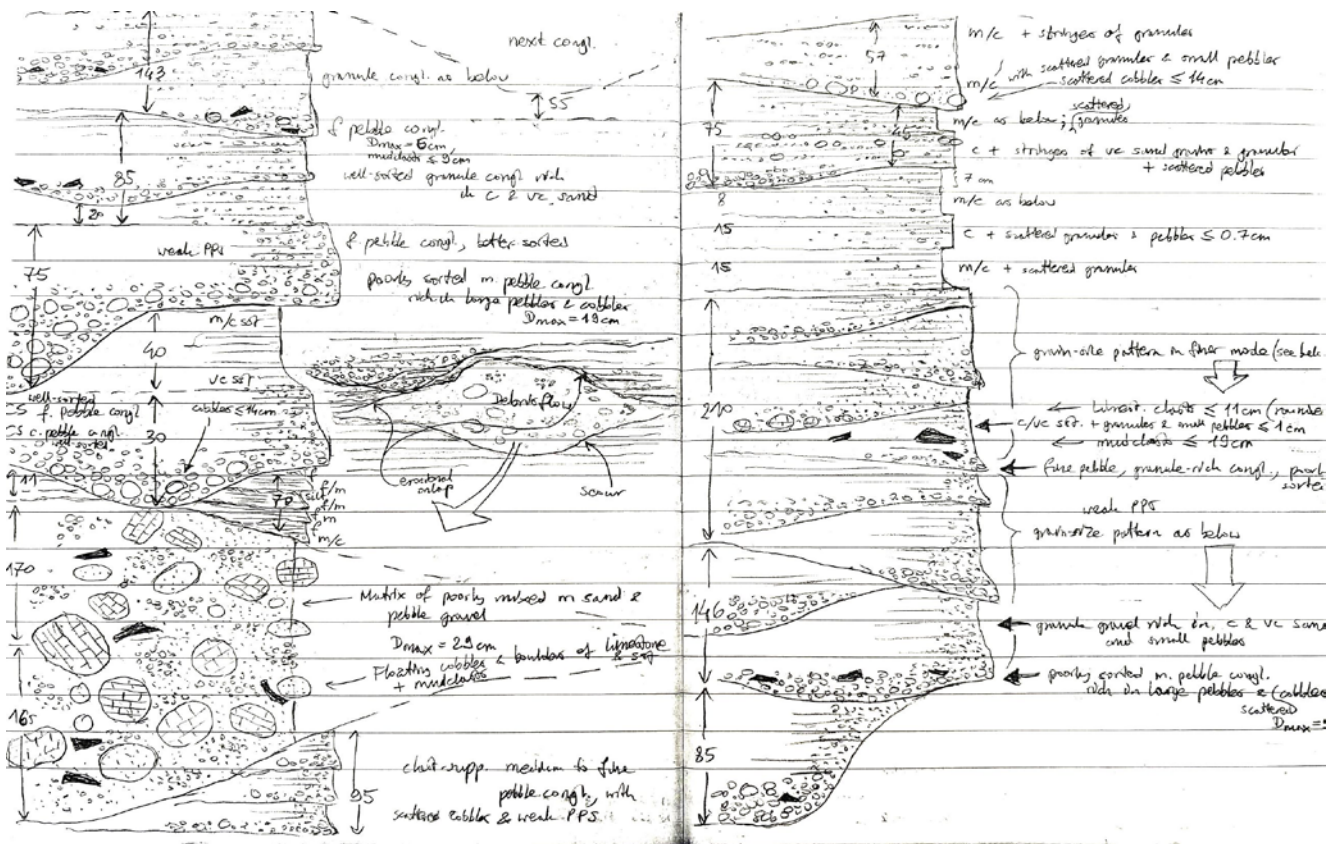 next congl.
143
granule congl. as below
55
f. pebble congl.
Dmax = 6cm,
mudclasts ≤ 9cm
85
well-sorted granule congl. rich
in c & vc sand
20
weak PPS
f. pebble congl., better-sorted
75
poorly sorted m. pebble congl.
rich in large pebbles & cobbles
Dmax = 19cm
m/c sst
40
vc sst
well-sorted
CS f. pebble congl
cobbles ≤ 14cm
CS c. pebble congl
well-sorted
30
Debris flow
11
70
f/m
silt
f/m
f
m
m/c
erosional
onlap
scour
170
Matrix of poorly mixed m sand &
pebble gravel
Dmax = 29cm
Floating cobbles & boulders of limestone
& sst
+ mudclasts
165
95
clast-supp. medium to fine
pebble congl, with
scattered cobbles & weak PPS
m/c + stringers of granules
57
m/c with scattered granules & small pebbles
scattered cobbles ≤ 14cm
75
45
m/c as below; scattered
granules
c + stringers of vc sand grains & granules
+ scattered pebbles
7 cm
8
m/c as below
15
c + scattered granules & pebbles ≤ 0.7cm
15
m/c + scattered granules
grain-size pattern in finer mode (see
210
limest. clasts ≤ 11cm
c/vc sst. + granules & small pebbles ≤ 1cm
mudclasts ≤ 19cm
fine pebble, granule-rich congl., poorly
sorted
weak PPS
grain-size pattern as below
146
granule gravel rich in c & vc sand
and small pebbles
poorly sorted m. pebble congl.
rich in large pebbles & (cobbles
scattered
Dmax =
85